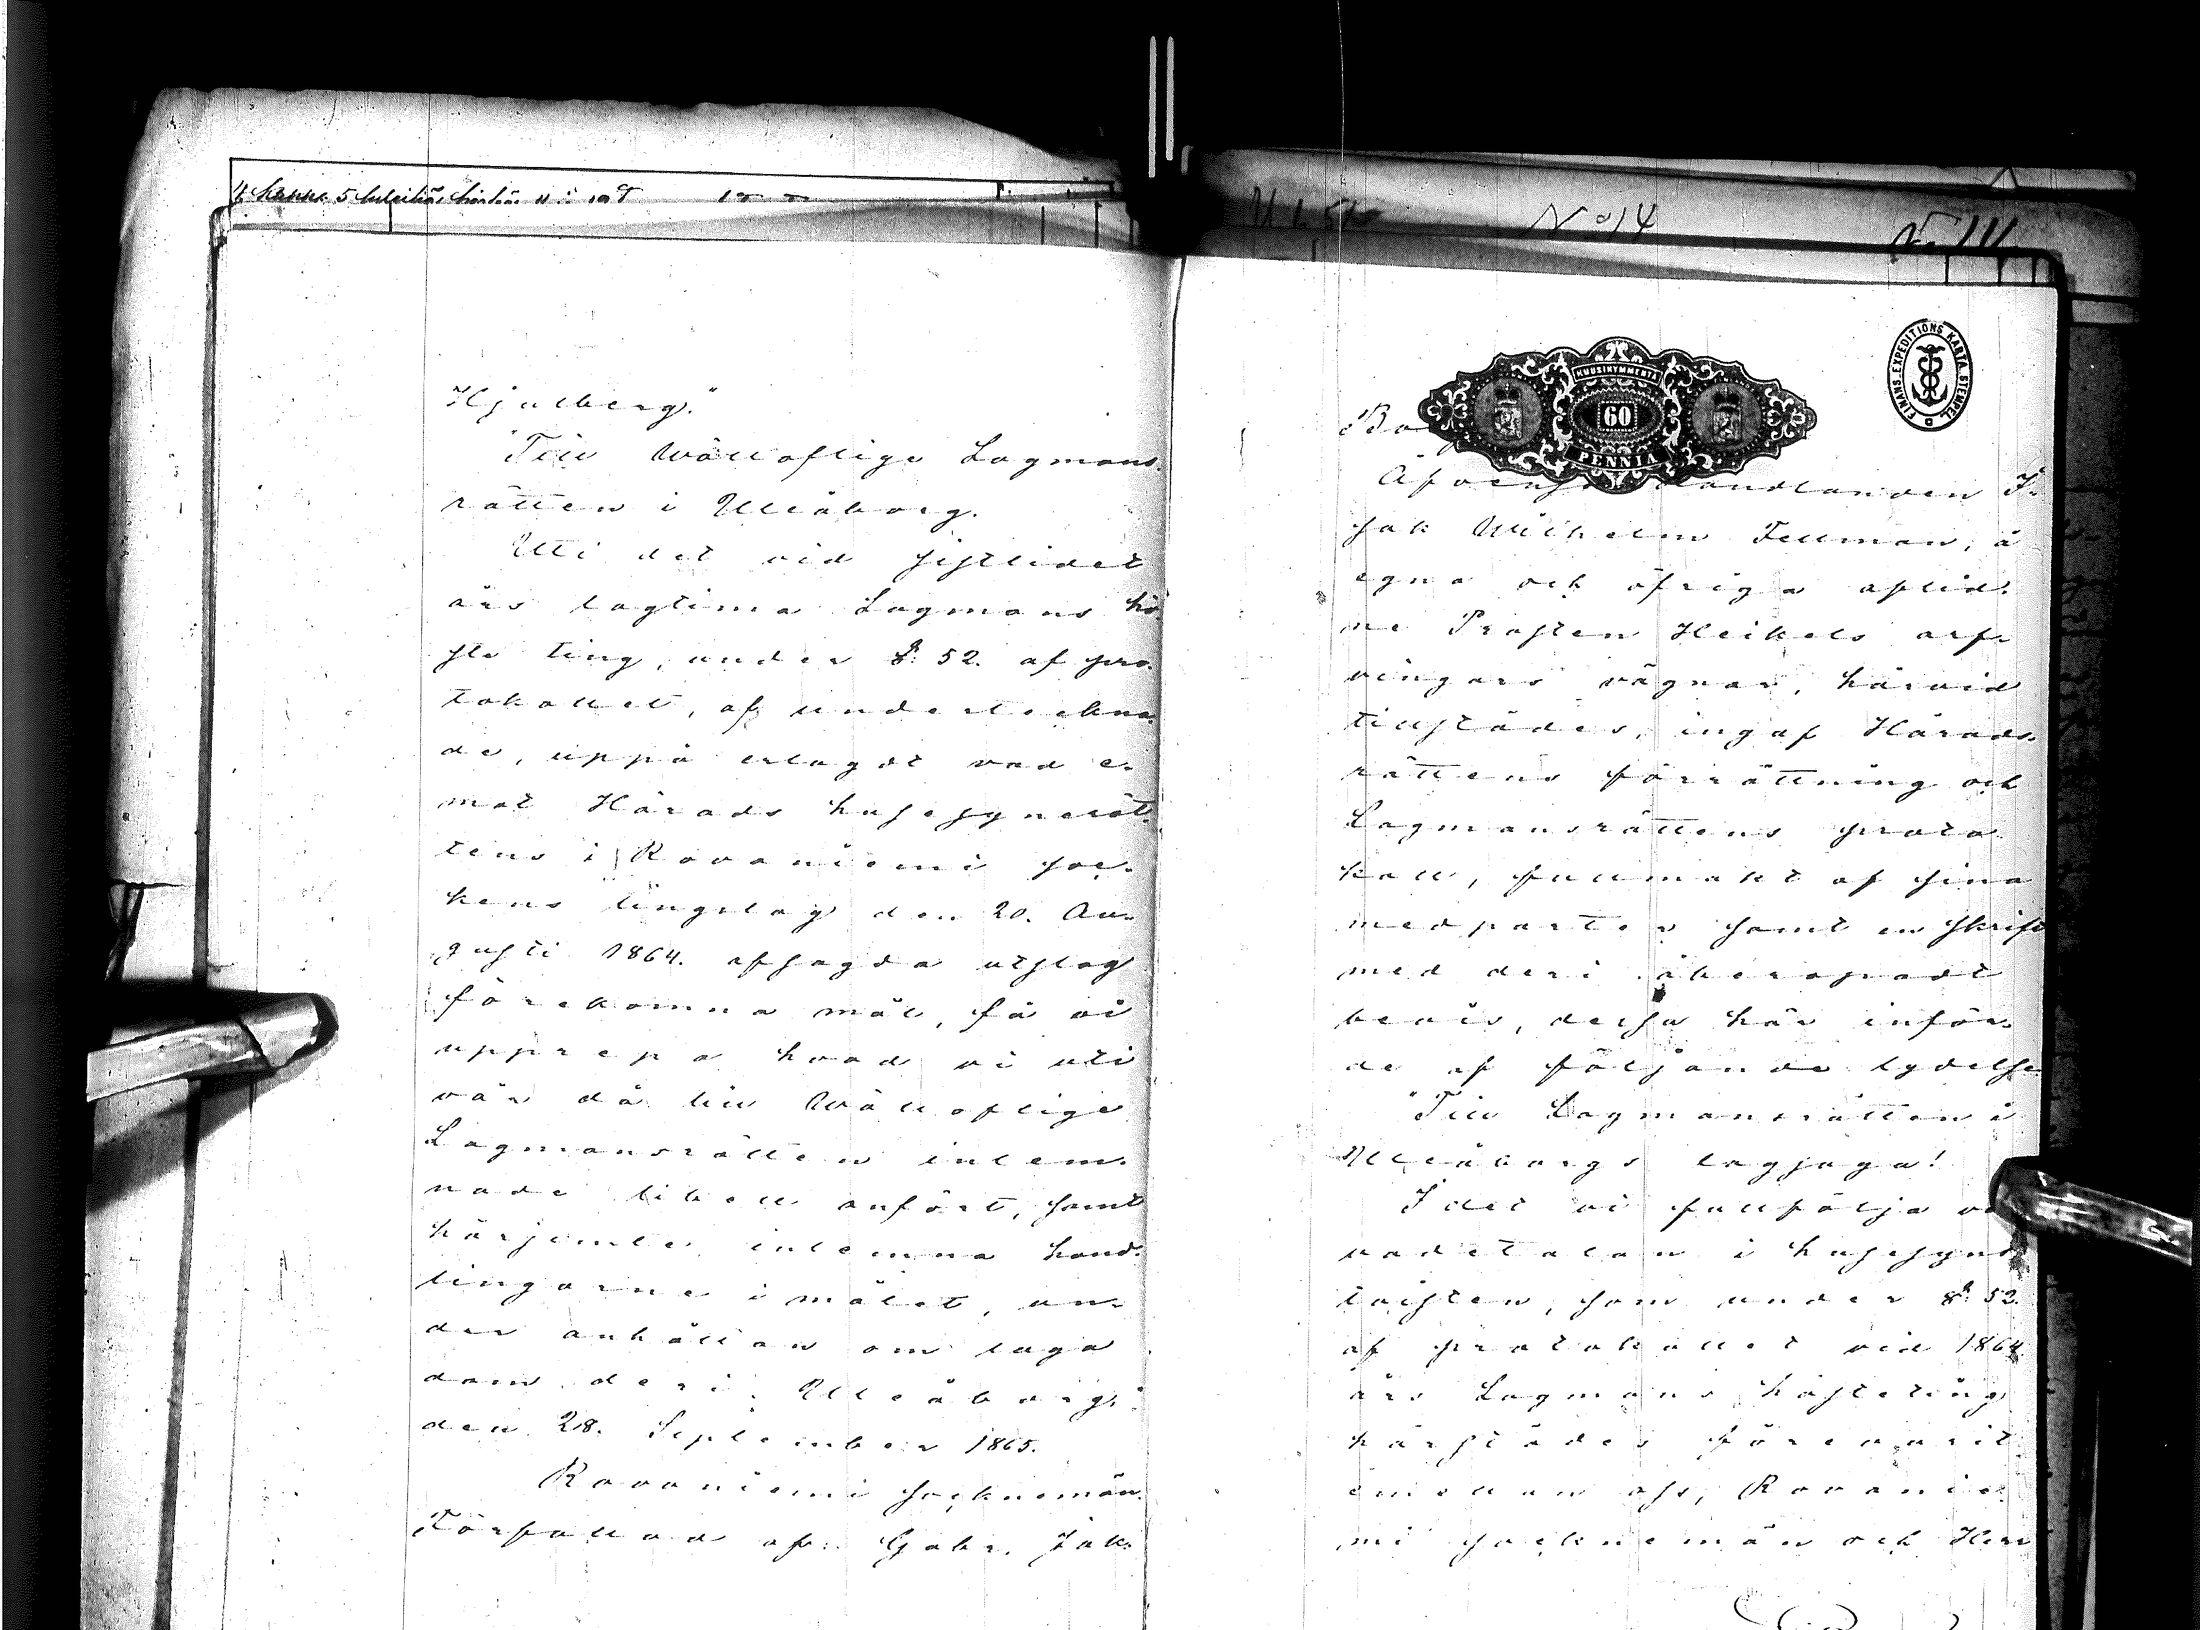 Hjulberg."
"Till Wällofliga Lagmans-
rätten i Uleåborg.
Uti det vid sistlidet
års lagtima Lagmans hö-
ste ting, under §. 52. af pro-
tokollet, af underteckna-
de, uppå erlagdt vad e-
mot Härads husesynerät-
tens i Rovaniemi soc-
kens tingslag den 20. Au-
gusti 1864. afsagda utslag
förekomna mål, få vi
upprepa hvad vi uti
vår då till Wällofliga
Lagmansrätten inlem-
nade libell anfört, samt
härjemte inlemna hand-
lingarne i målet, un-
der anhållan om laga
dom deri. Uleåborg,
den 28. September 1865.
Rovaniemi socknemän.
Författad af: Gabr. Jak.
No 14
No 14
FINANS.EXPEDITIONS KARTA.STEMPEL.
KUUSIKYMMENTÄ
60
PENNIÄ
Handlanden I-
sak Wilhelm Fellman, å
egna och öfriga aflid-
ne Prosten Heikels arf-
vingars vägnar, härvid
tillstädes, ingaf Härads-
rättens förrättning och
Lagmansrättens proto
koll, fullmakt af sina
medparter samt en skrift
med deri åberopadt
bevis, dessa här inför-
de af följande lydelse
"Till Lagmansrätten i
Uleåborgs lagsaga!
I det vi fullfölja
vadetalan i husesyns
tvisten, som under §. 52.
af protokollet vid 1864
års Lagmans hösteting
härstädes förevarit
emellan oss, Rovanie-
mi socknemän och Herr